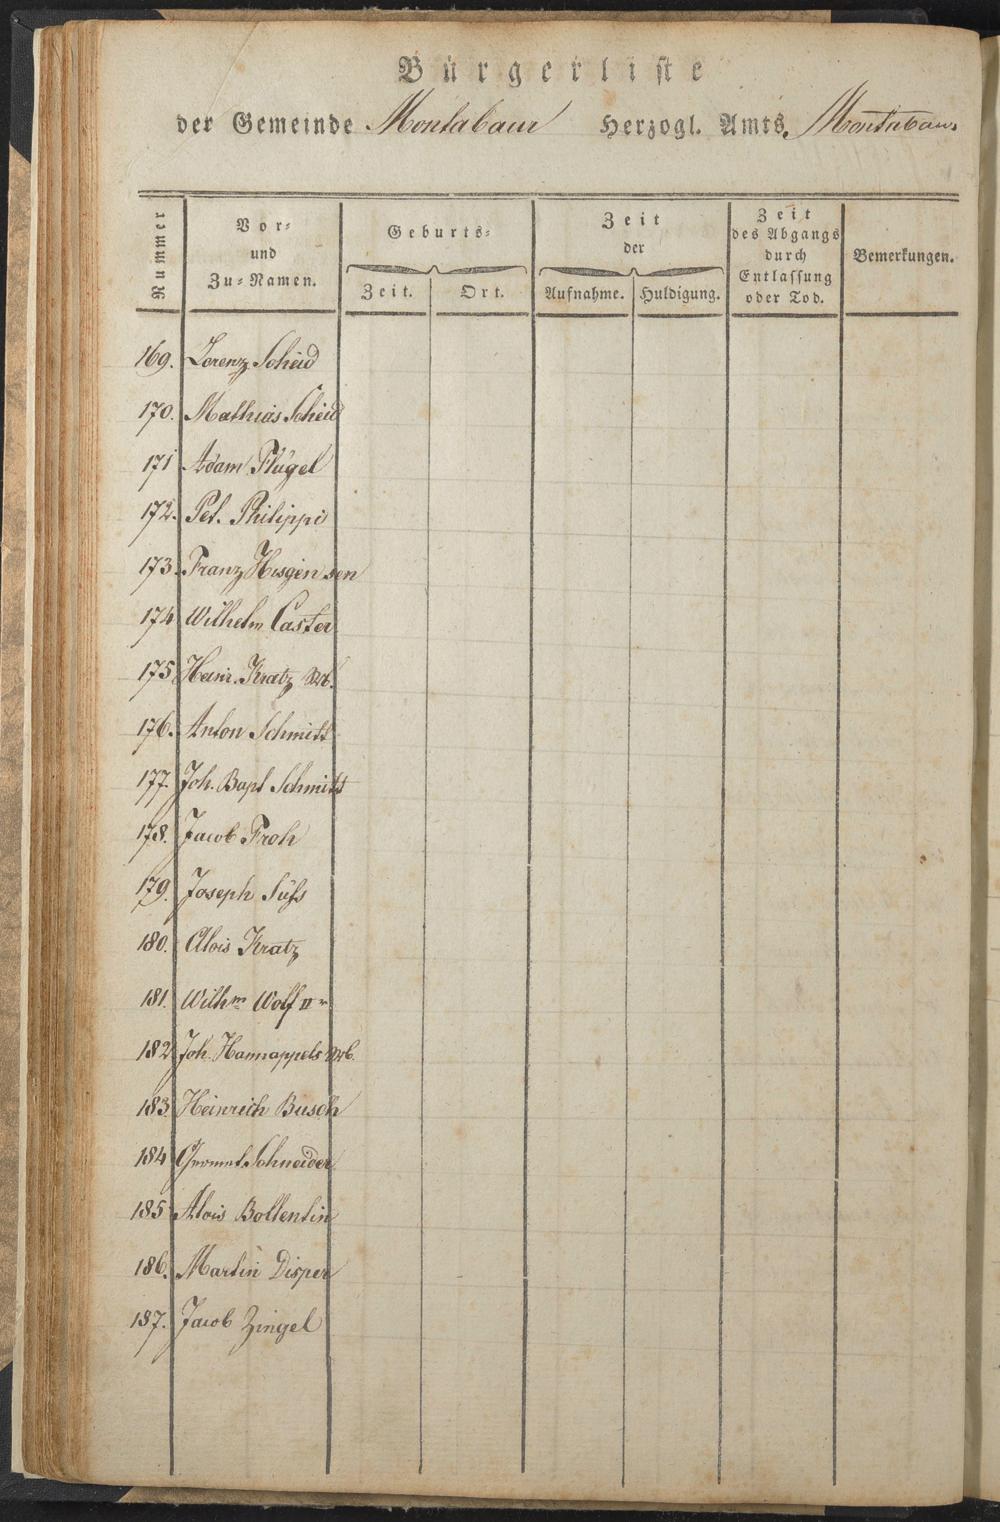 Bürgerliste
der Gemeinde Montabaur Herzogl. Amts Montabaur
Nummer
Vor-
und
Zu-Namen.
Geburts-
Zeit.
Ort.
Zeit
der
Aufnahme.
Huldigung.
Zeit
des Abgangs
durch
Entlassung
oder Tod.
Bemerkungen.
169. Lorenz Scheid
170. Mathias Scheid
171 Adam Flügel
172. Pet. Philippi
173. Franz Hisgen sen
174 Wilhelm Caster
175 Heinr. Kratz Wb.
176. Anton Schmitt
177. Joh. Bapt Schmitt
178. Jacob Froh
179. Joseph Süß
180. Alois Kratz
181. Wilhm Wolf IIr
182 Joh. Hannappels Wb.
183 Heinrich Busch
184 Schneider
185 Alois Bollentin
186. Martin Disper
187. Jacob Zingel